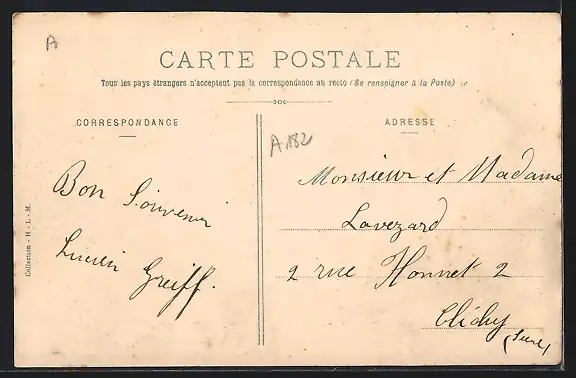 A
CARTE POSTALE
Tous les pays étrangers n'acceptent pas la correspondance au recto (Se renseigner à la Poste)
CORRESPONDANCE
ADRESSE
A 182
Bon Souvenir
Lucien Greiff.
Monsieur et Madame
Lavezard
2 rue Honnet 2
Clichy
(Seine)
Collection - H - L - M.